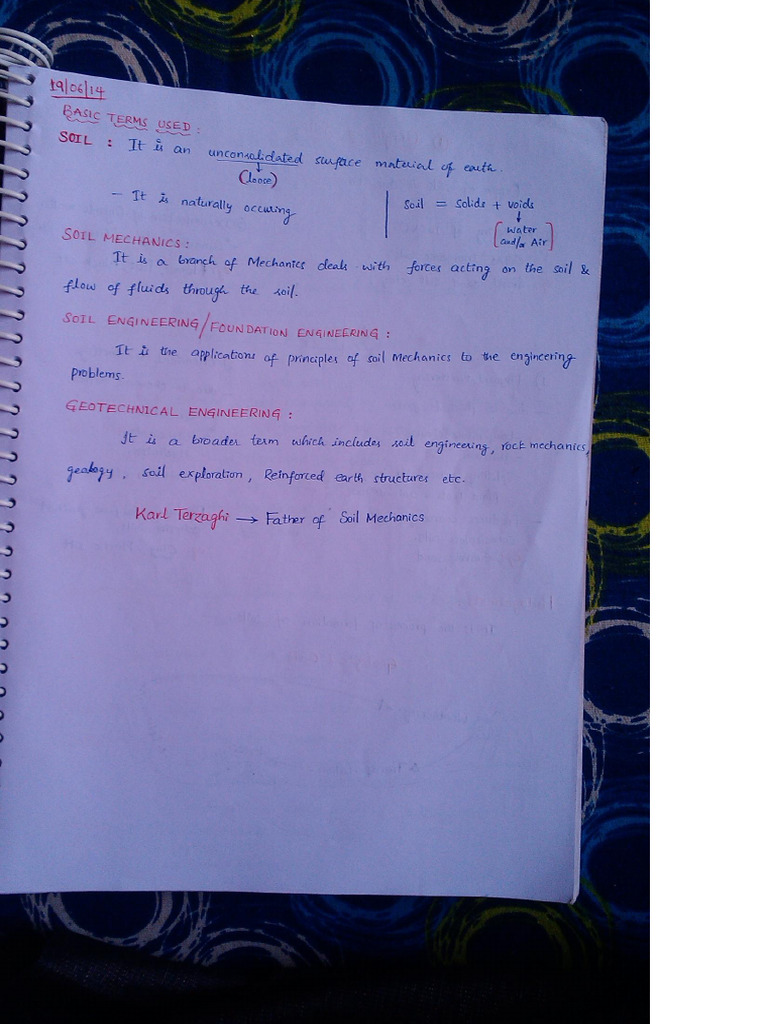 19/06/14
BASIC TERMS USED :
SOIL : It is an unconsalidated surface material of earth.
(loose)
- It is naturally occuring
Soil = Solids + voids
[Water
and/or Air]
SOIL MECHANICS :
It is a branch of Mechanics deals with forces acting on the soil &
flow of fluids through the soil.
SOIL ENGINEERING/FOUNDATION ENGINEERING :
It is the applications of principles of soil Mechanics to the engineering
problems.
GEOTECHNICAL ENGINEERING :
It is a broader term which includes soil engineering, rock mechanics,
geology, soil exploration, Reinforced earth structures etc.
Karl Terzaghi → Father of Soil Mechanics